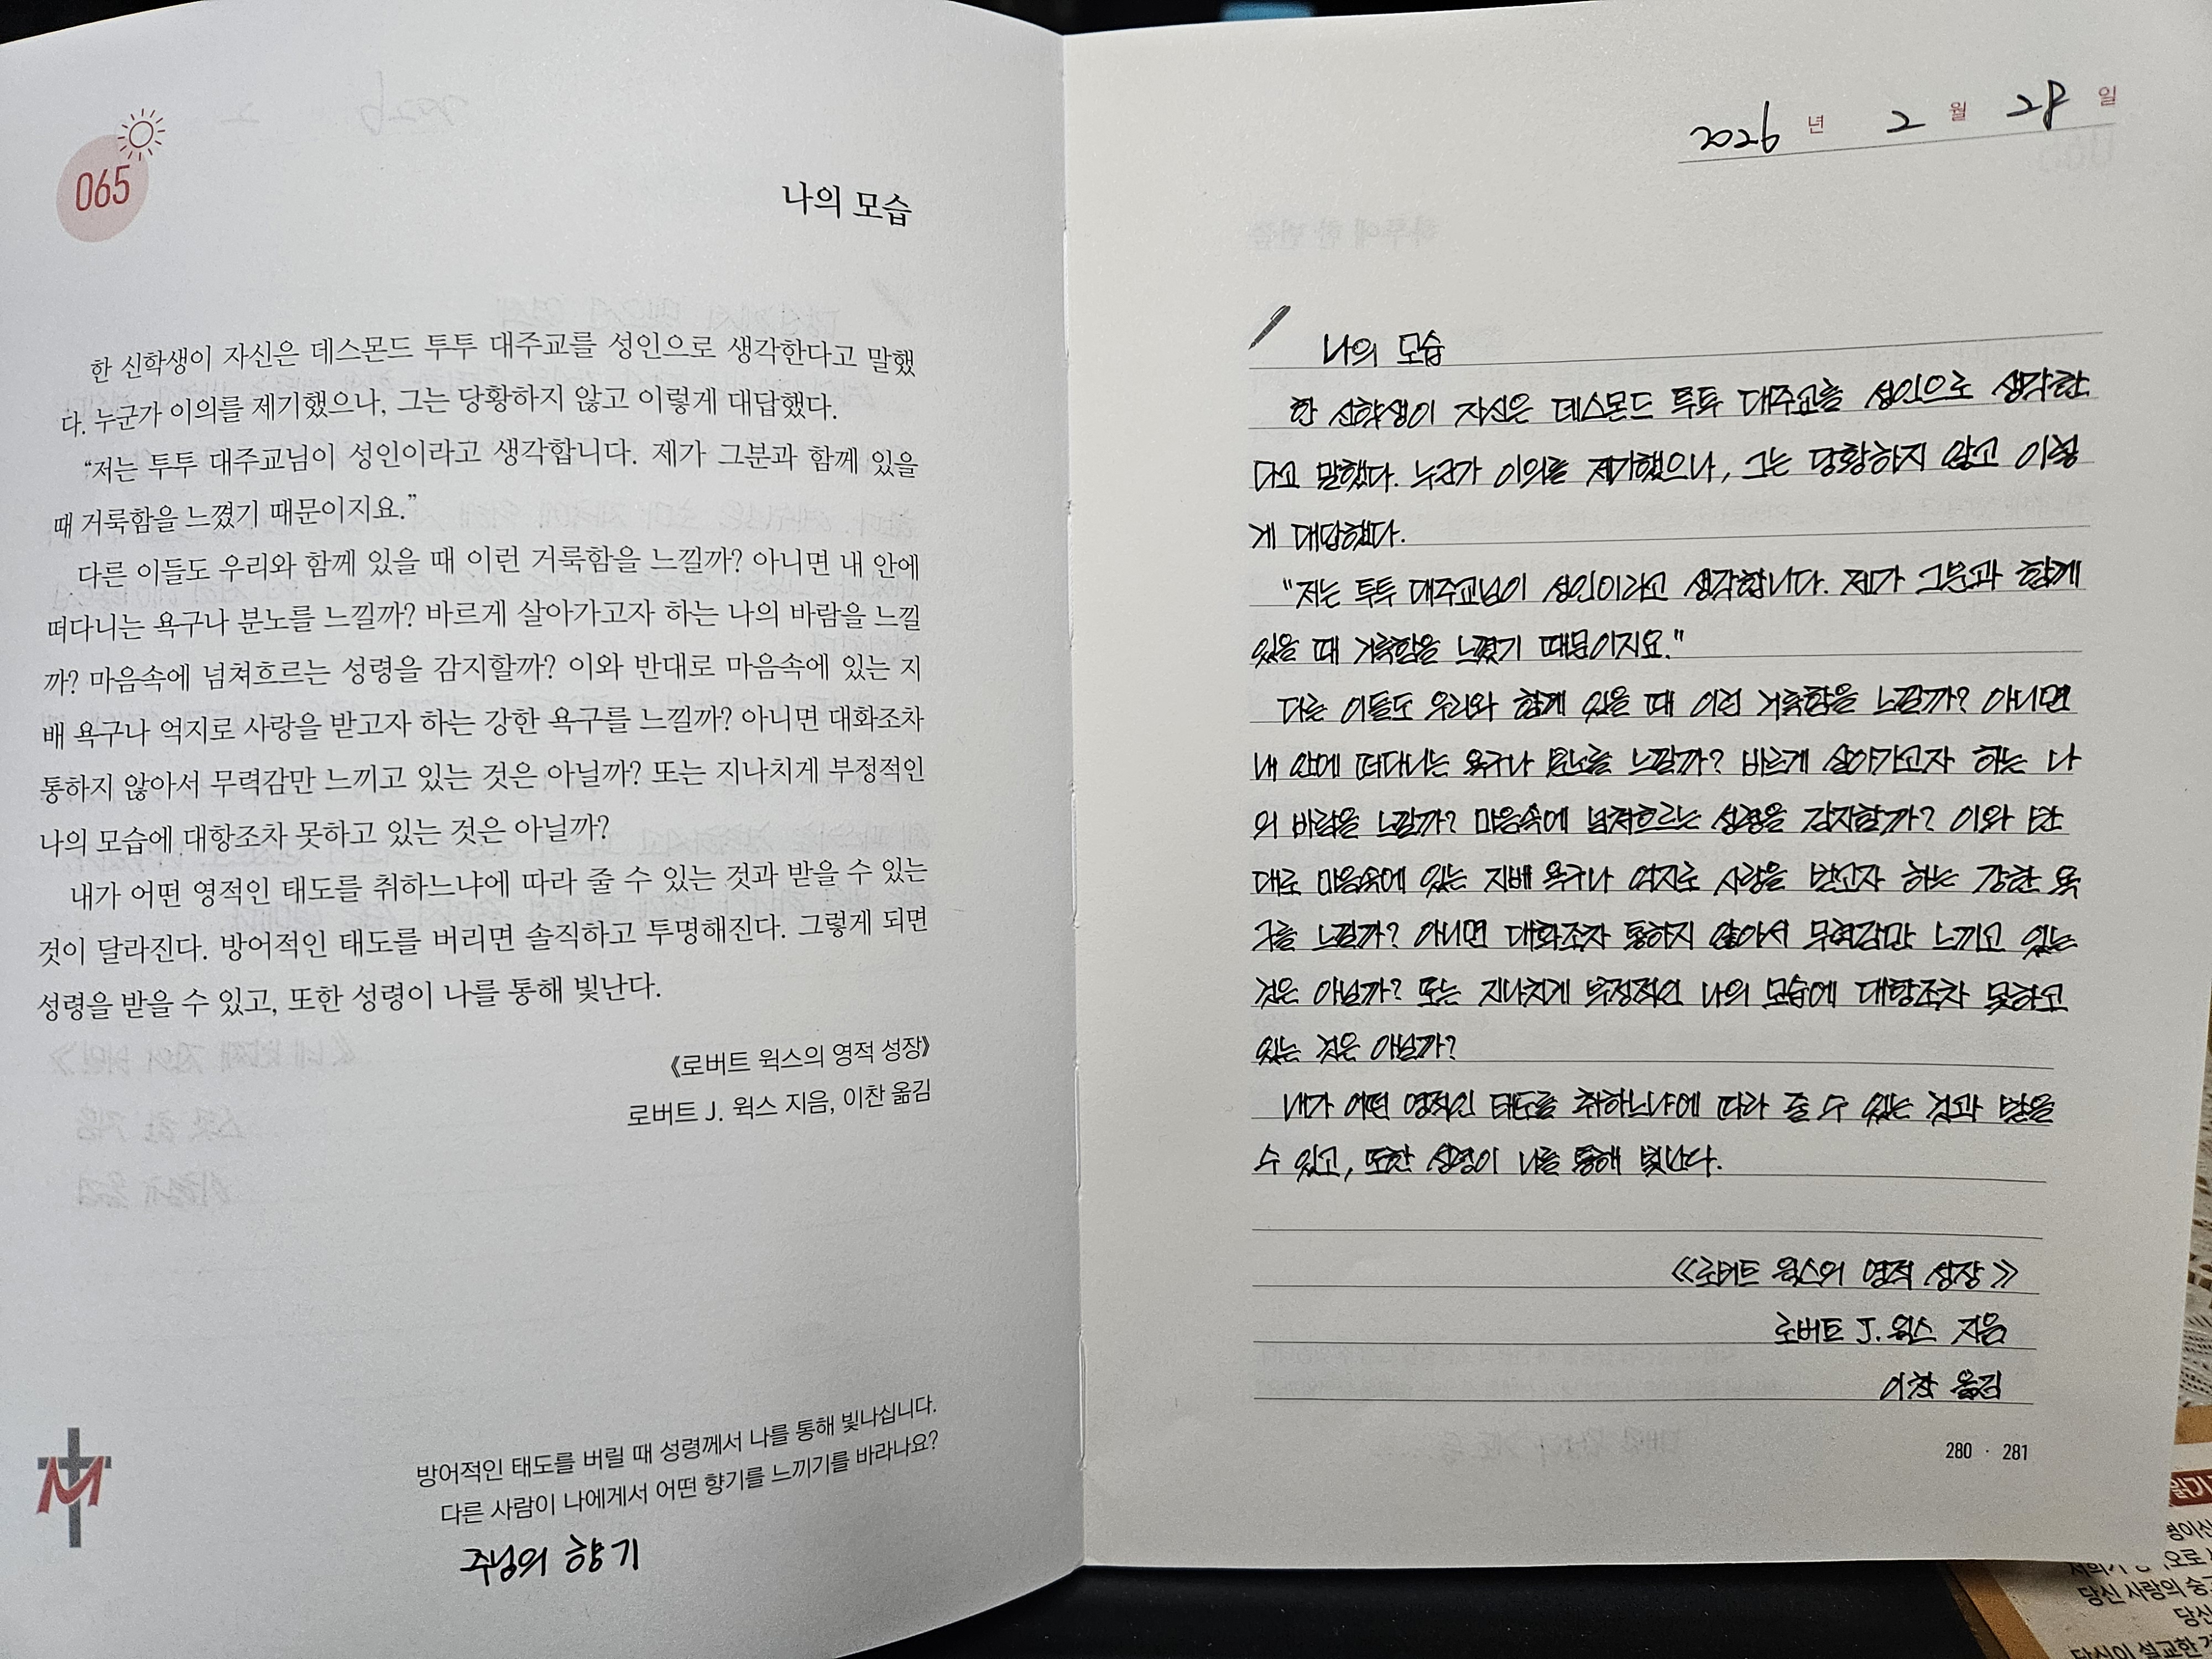 065
나의 모습
한 신학생이 자신은 데스몬드 투투 대주교를 성인으로 생각한다고 말했
다. 누군가 이의를 제기했으나, 그는 당황하지 않고 이렇게 대답했다.
“저는 투투 대주교님이 성인이라고 생각합니다. 제가 그분과 함께 있을
때 거룩함을 느꼈기 때문이지요.”
다른 이들도 우리와 함께 있을 때 이런 거룩함을 느낄까? 아니면 내 안에
떠다니는 욕구나 분노를 느낄까? 바르게 살아가고자 하는 나의 바람을 느낄
까? 마음속에 넘쳐흐르는 성령을 감지할까? 이와 반대로 마음속에 있는 지
배 욕구나 억지로 사랑을 받고자 하는 강한 욕구를 느낄까? 아니면 대화조차
통하지 않아서 무력감만 느끼고 있는 것은 아닐까? 또는 지나치게 부정적인
나의 모습에 대항조차 못하고 있는 것은 아닐까?
내가 어떤 영적인 태도를 취하느냐에 따라 줄 수 있는 것과 받을 수 있는
것이 달라진다. 방어적인 태도를 버리면 솔직하고 투명해진다. 그렇게 되면
성령을 받을 수 있고, 또한 성령이 나를 통해 빛난다.
《로버트 윅스의 영적 성장》
로버트 J. 윅스 지음, 이찬 옮김
방어적인 태도를 버릴 때 성령께서 나를 통해 빛나십니다.
다른 사람이 나에게서 어떤 향기를 느끼기를 바라나요?
주님의 향기
2026 년 2 월 28 일
나의 모습
한 신학생이 자신은 데스몬드 투투 대주교를 성인으로 생각한
다고 말했다. 누군가 이의를 제기했으나, 그는 당황하지 않고 이렇
게 대답했다.
"저는 투투 대주교님이 성인이라고 생각합니다. 제가 그분과 함께
있을 때 거룩함을 느꼈기 때문이지요."
다른 이들도 우리와 함께 있을 때 이런 거룩함을 느낄까? 아니면
내 안에 떠다니는 욕구나 분노를 느낄까? 바르게 살아가고자 하는 나
의 바람을 느낄까? 마음속에 넘쳐흐르는 성령을 감지할까? 이와 반
대로 마음속에 있는 지배 욕구나 억지로 사랑을 받고자 하는 강한 욕
구를 느낄까? 아니면 대화조차 통하지 않아서 무력감만 느끼고 있는
것은 아닐까? 또는 지나치게 부정적인 나의 모습에 대항조차 못하고
있는 것은 아닐까?
내가 어떤 영적인 태도를 취하느냐에 따라 줄 수 있는 것과 받을
수 있고, 또한 성령이 나를 통해 빛난다.
《로버트 윅스의 영적 성장》
로버트 J. 윅스 지음
이찬 옮김
280 · 281
당신 사랑의